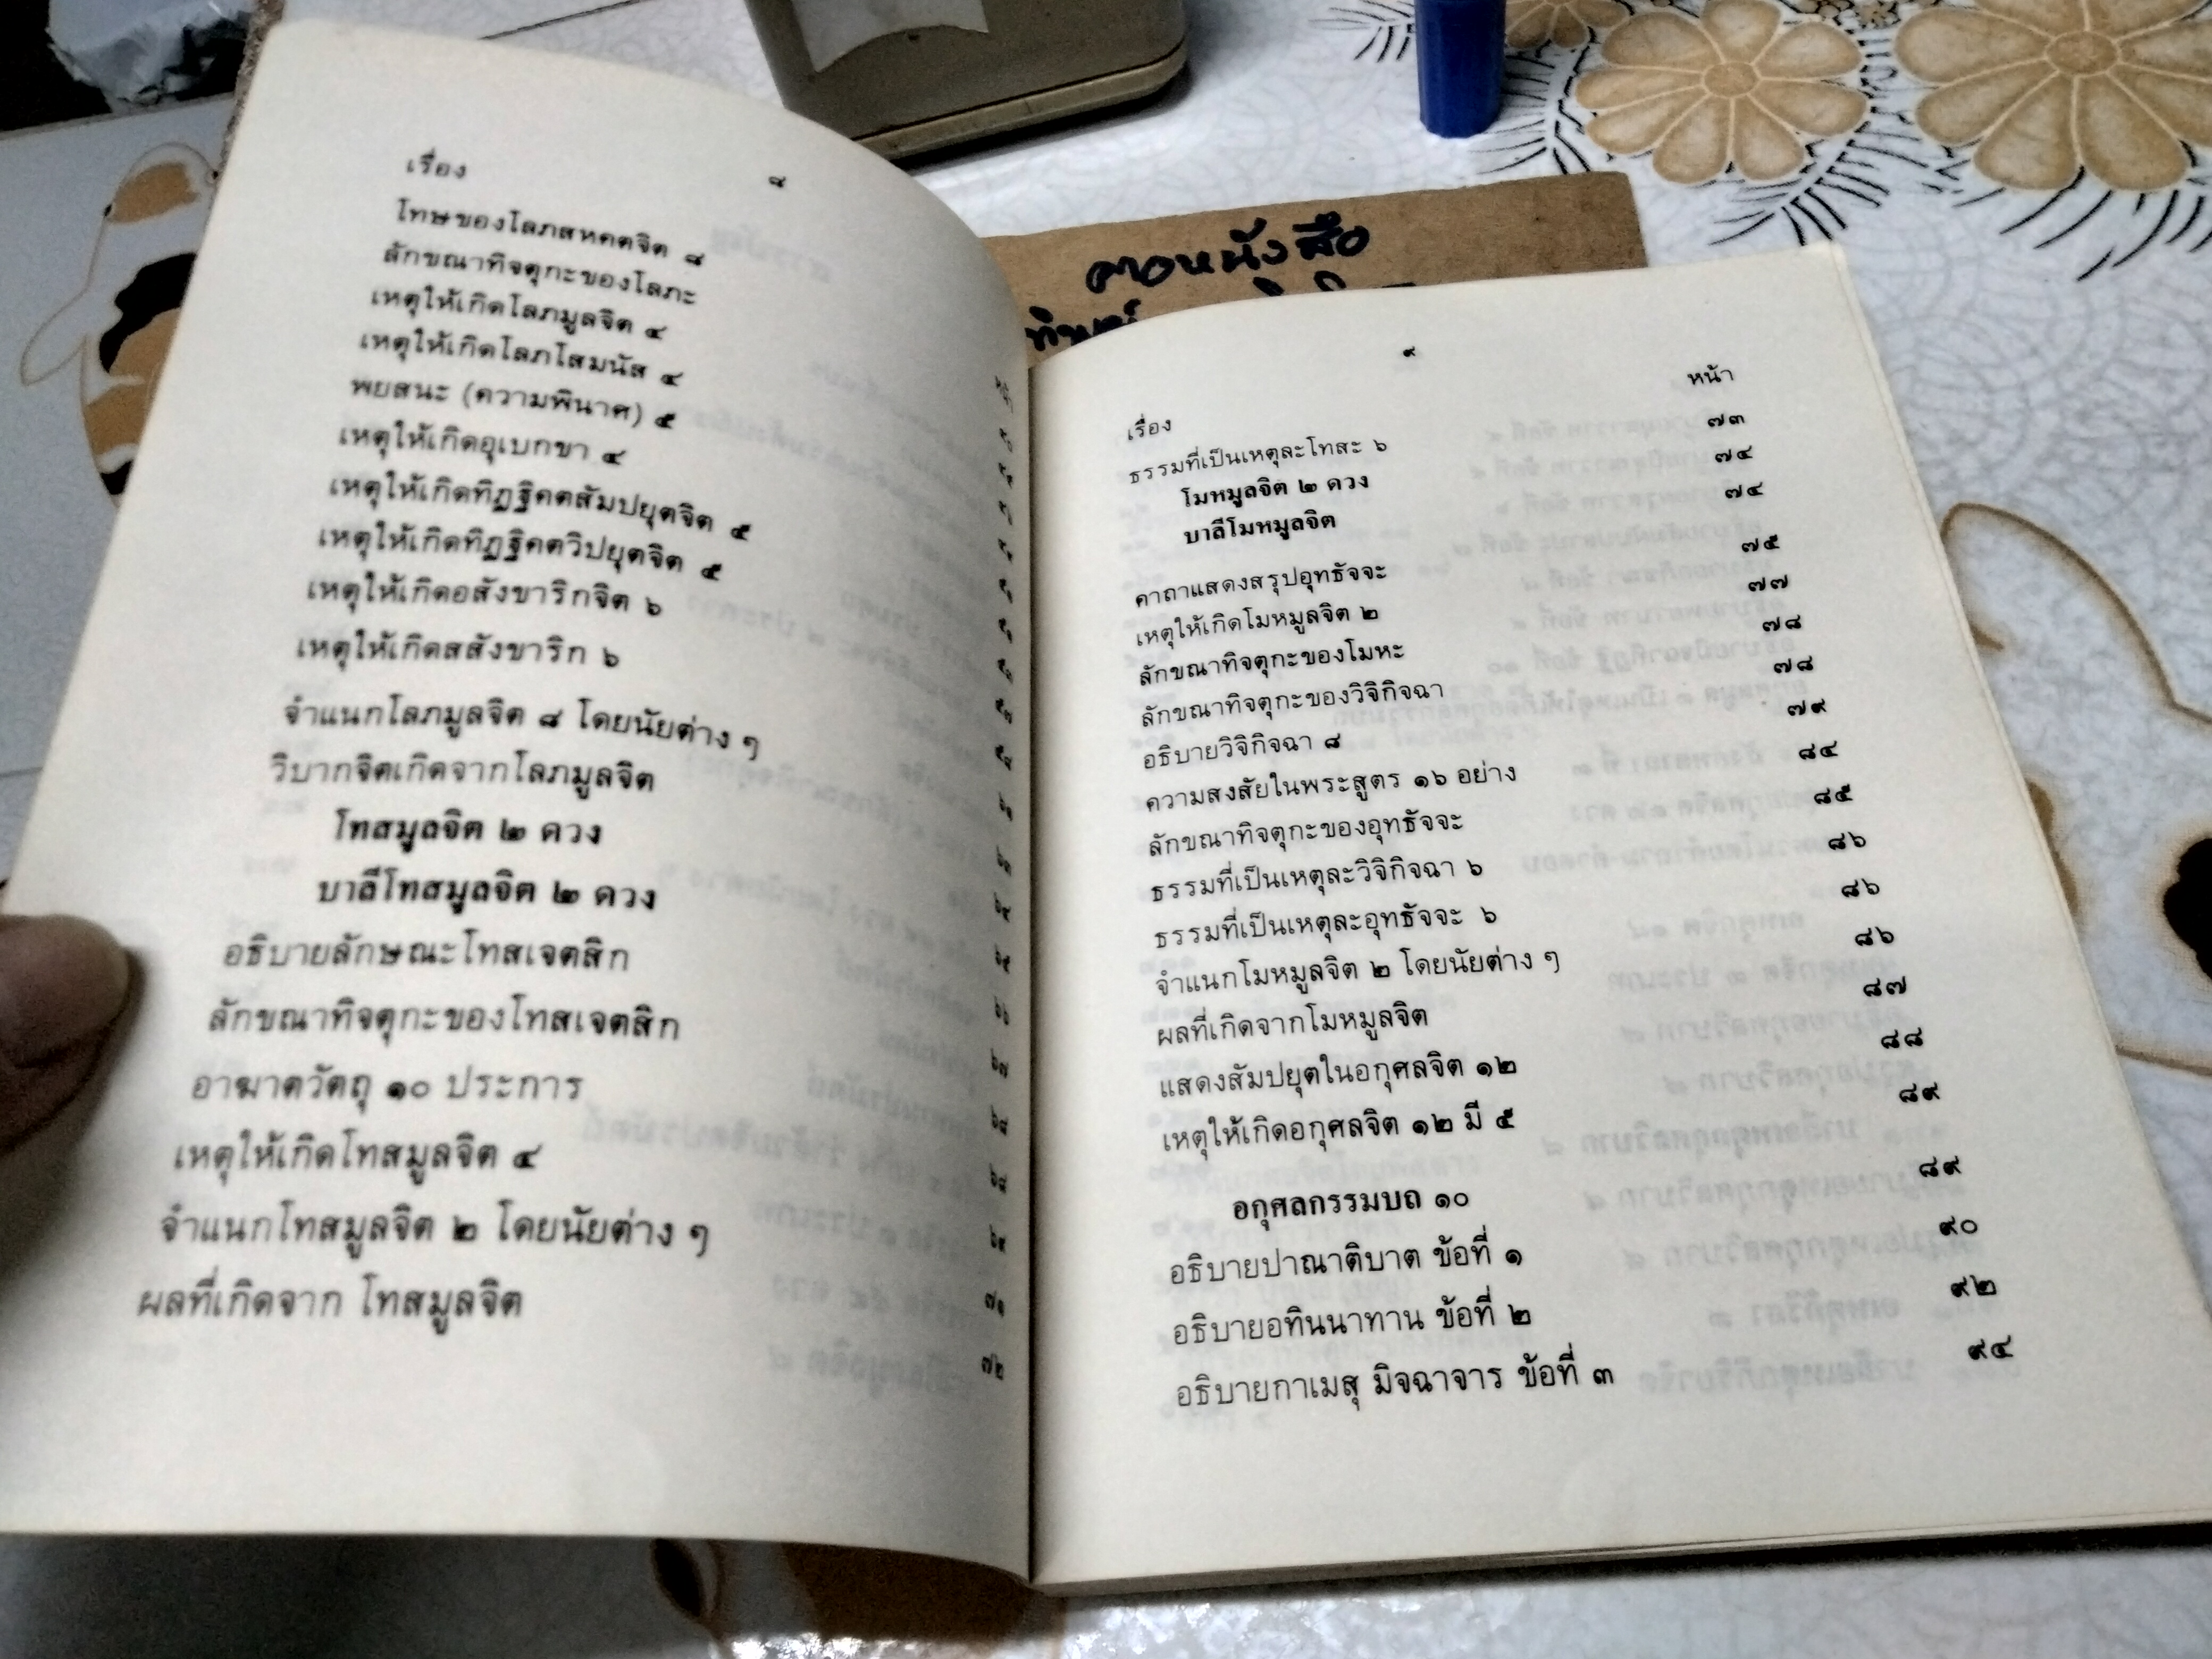 เรื่อง
๘
โทษของโลภสหคตจิต ๘
ลักขณาทิจตุกะของโลภะ
เหตุให้เกิดโลภมูลจิต ๔
เหตุให้เกิดโลภโสมนัส ๔
พยสนะ (ความพินาศ) ๕
เหตุให้เกิดอุเบกขา ๔
เหตุให้เกิดทิฏฐิคตสัมปยุตจิต ๕
เหตุให้เกิดทิฏฐิคตวิปยุตจิต ๕
เหตุให้เกิดอสังขาริกจิต ๖
เหตุให้เกิดสสังขาริก ๖
จำแนกโลภมูลจิต ๘ โดยนัยต่าง ๆ
วิบากจิตเกิดจากโลภมูลจิต
โทสมูลจิต ๒ ดวง
บาลีโทสมูลจิต ๒ ดวง
อธิบายลักษณะโทสเจตสิก
ลักขณาทิจตุกะของโทสเจตสิก
อาฆาตวัตถุ ๑๐ ประการ
เหตุให้เกิดโทสมูลจิต ๔
จำแนกโทสมูลจิต ๒ โดยนัยต่าง ๆ
ผลที่เกิดจาก โทสมูลจิต
๗๑
๗๒
ฅอหนังสือ
๙
เรื่อง หน้า
ธรรมที่เป็นเหตุละโทสะ ๖ ๗๓
โมหมูลจิต ๒ ดวง ๗๔
บาลีโมหมูลจิต ๗๔
คาถาแสดงสรุปอุทธัจจะ ๗๕
เหตุให้เกิดโมหมูลจิต ๒ ๗๗
ลักขณาทิจตุกะของโมหะ ๗๘
ลักขณาทิจตุกะของวิจิกิจฉา ๗๘
อธิบายวิจิกิจฉา ๘ ๗๙
ความสงสัยในพระสูตร ๑๖ อย่าง ๘๔
ลักขณาทิจตุกะของอุทธัจจะ ๘๕
ธรรมที่เป็นเหตุละวิจิกิจฉา ๖ ๘๖
ธรรมที่เป็นเหตุละอุทธัจจะ ๖ ๘๖
จำแนกโมหมูลจิต ๒ โดยนัยต่าง ๆ ๘๖
ผลที่เกิดจากโมหมูลจิต ๘๗
แสดงสัมปยุตในอกุศลจิต ๑๒ ๘๘
เหตุให้เกิดอกุศลจิต ๑๒ มี ๕ ๘๙
อกุศลกรรมบถ ๑๐ ๘๙
อธิบายปาณาติบาต ข้อที่ ๑ ๙๐
อธิบายอทินนาทาน ข้อที่ ๒ ๙๒
อธิบายกาเมสุ มิจฉาจาร ข้อที่ ๓ ๙๔